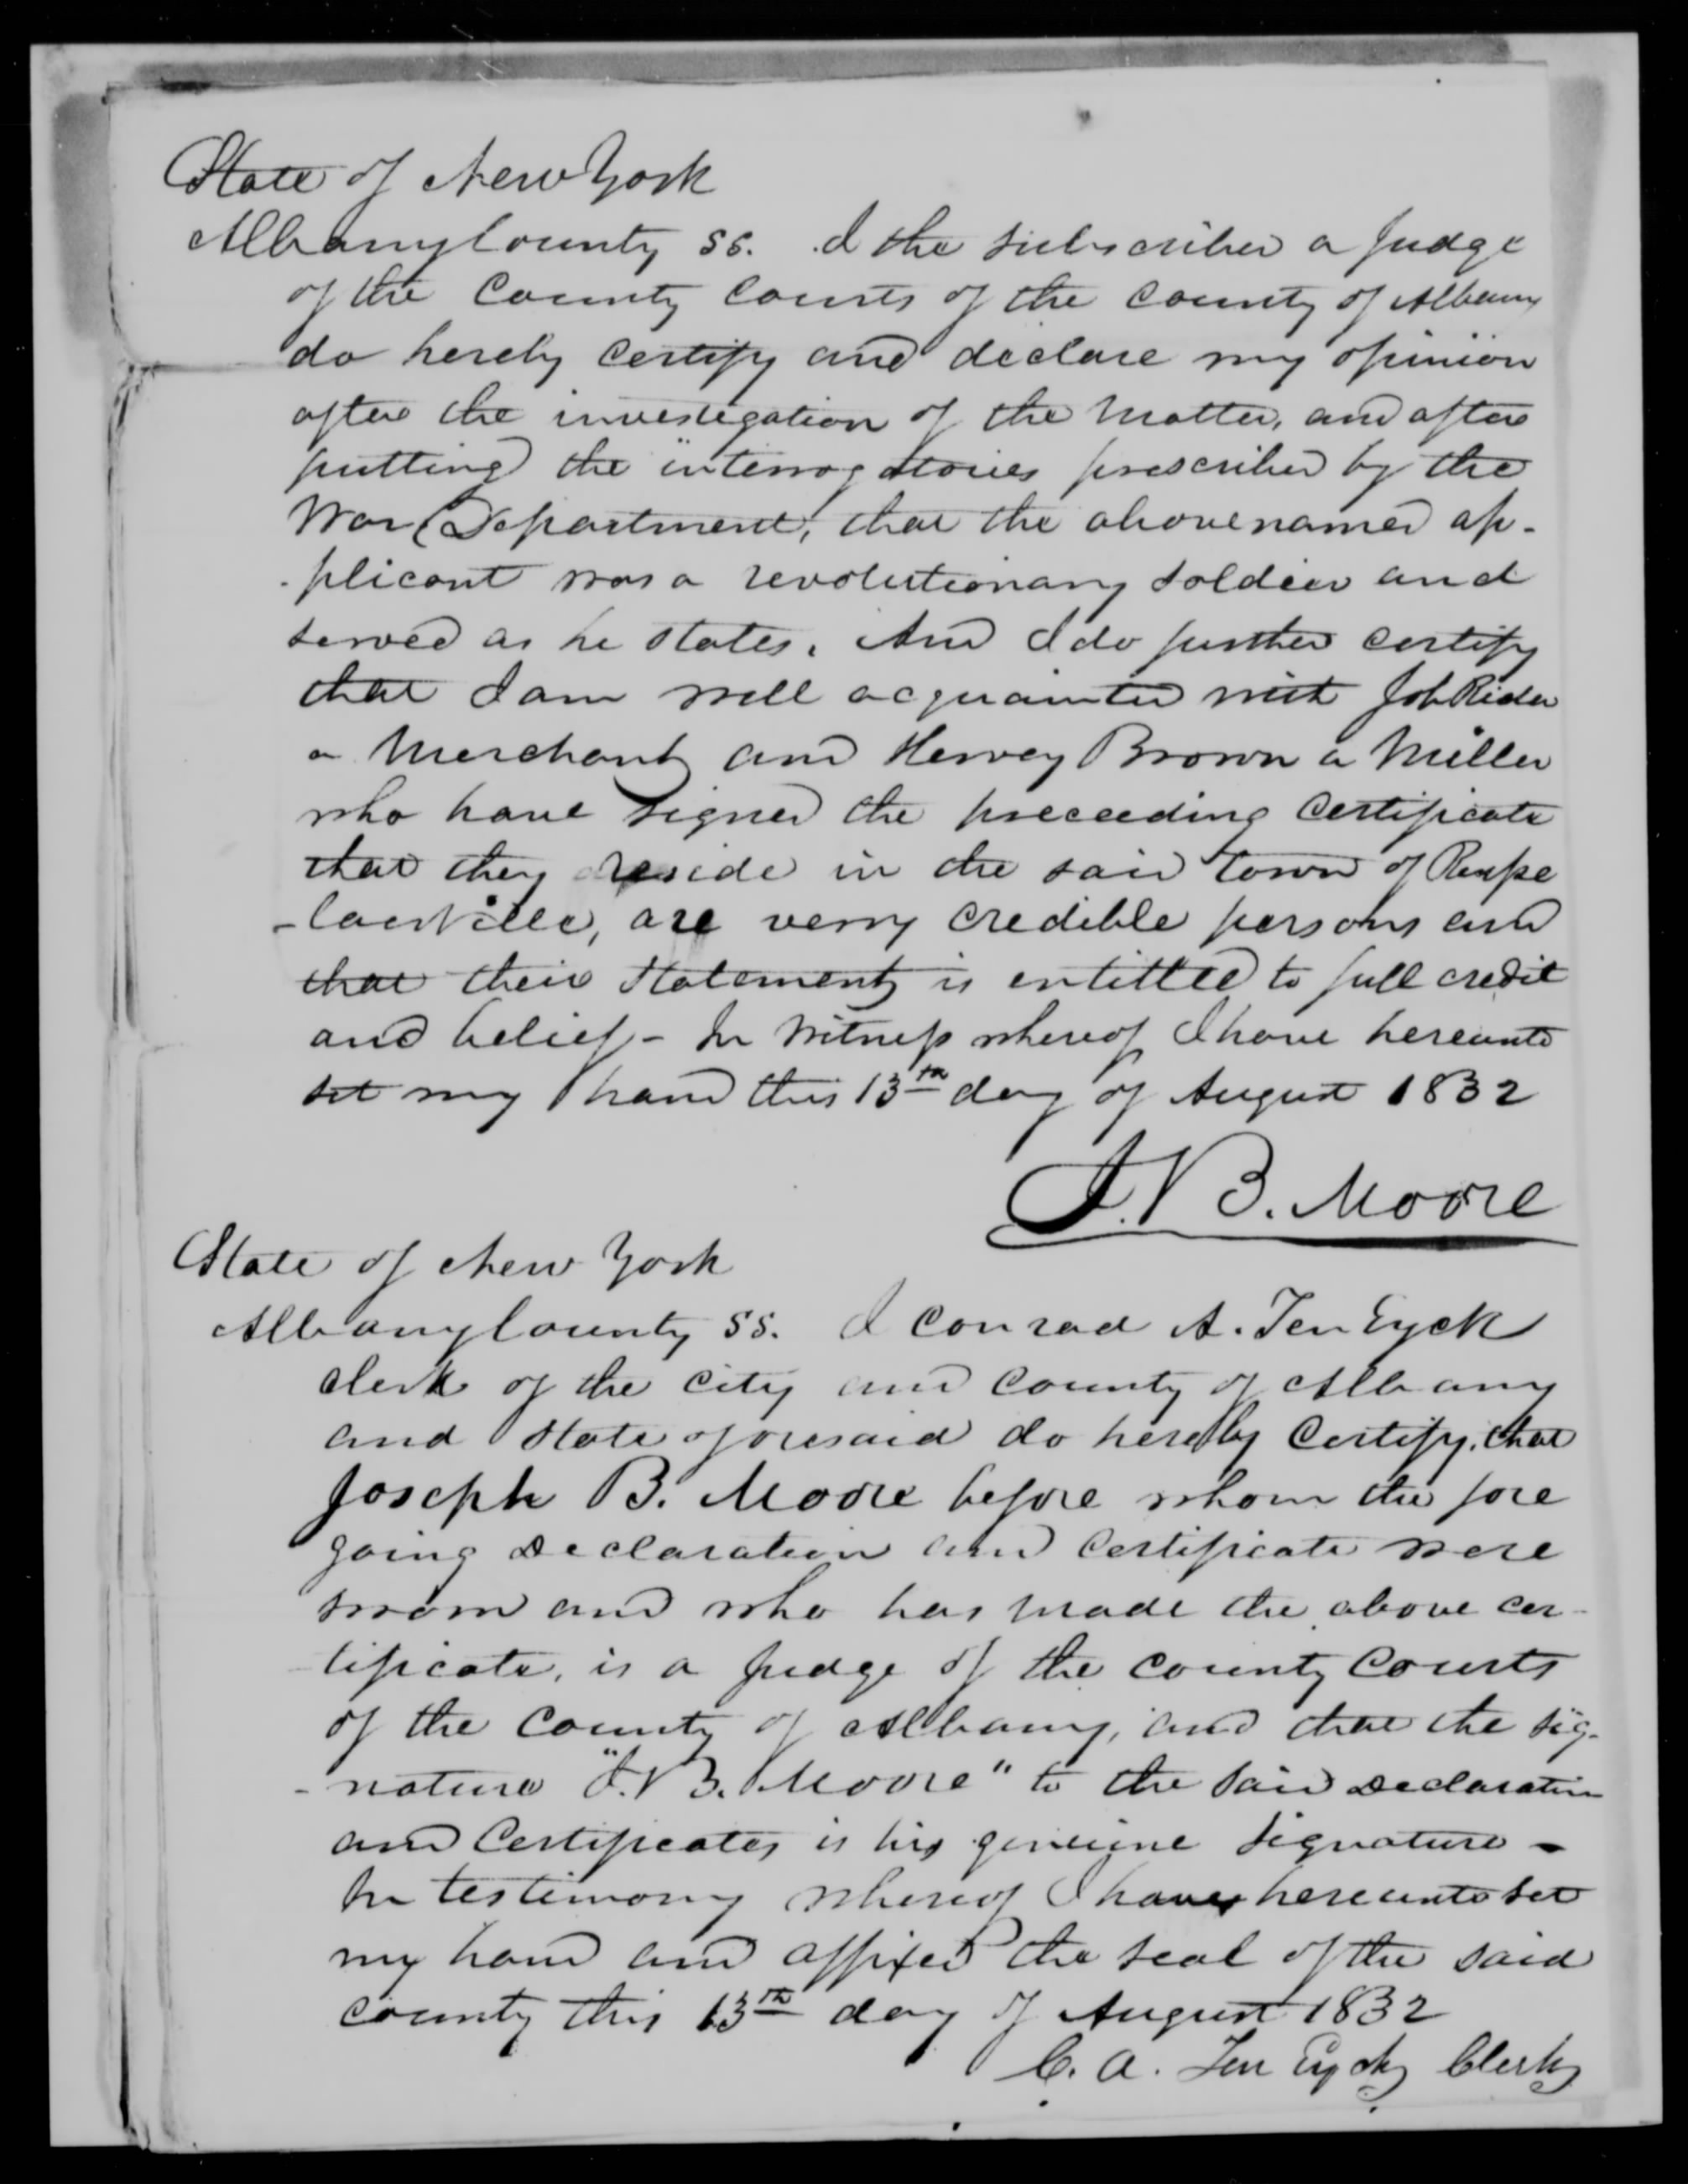 State of New York
Albany County ss. I the subscriber a Judge
of the County Courts of the County of Albany
do hereby certify and declare my opinion
after the investigation of the matter, and after
putting the interrogatories prescribed by the
War Department, that the abovenamed ap-
-plicant was a revolutionary soldier and
served as he states. And I do further certify
that I am well acquainted with Job Rider
a Merchant and Hervey Brown a Miller
who have signed the preceeding certificate
that they reside in the said town of Renſse
-laerville, are verry credible persons and
that their statement is entittled to full credit
and belief - In Witneſs whereof I have hereunto
set my hand this 13th day of August 1832
J. B. Moore
State of New York
Albany County ss. I Conrad A. Ten Eyck
clerk of the city and county of Albany
and State aforesaid do hereby Certify, that
Joseph B. Moore before whom the fore
going Declaration and Certificate were
sworn and who has made the above cer-
-tificate, is a Judge of the County Courts
of the County of Albany, and that the sig-
-nature "J. B. Moore" to the said Declaration
and Certificates is his genuine signature -
In testimony whereof I have hereunto set
my hand and affixed the seal of the said
county this 13th day of August 1832
C. A. Ten Eyck Clerk